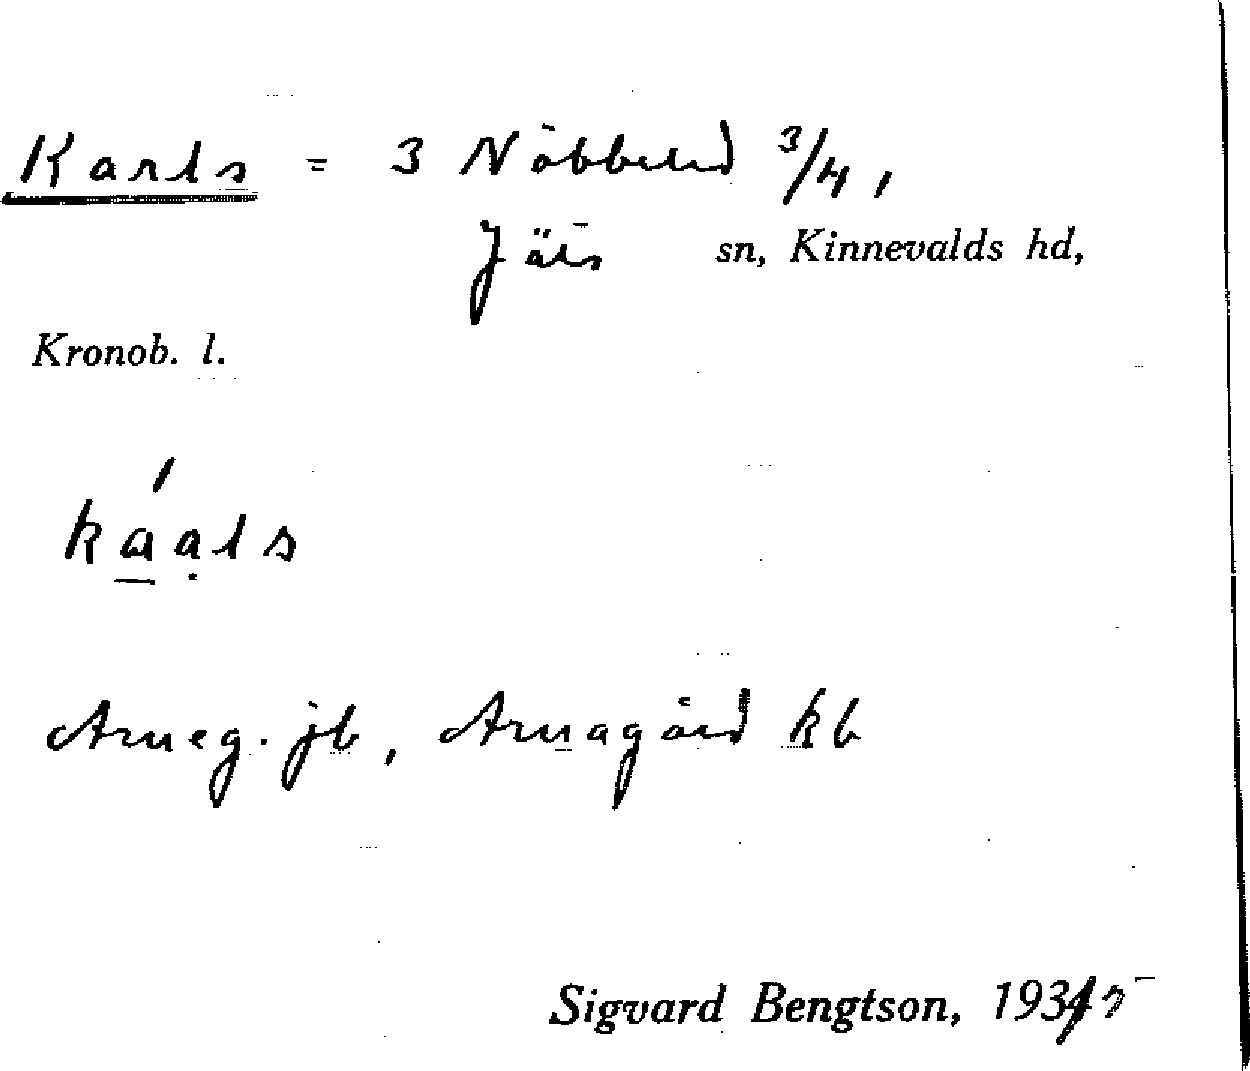 Karls = 3 Nöbbeled 3/4,
Jäts sn, Kinnevalds hd,
Kronob. l.
káals
Arneg. jb, Arnagård kb
Sigvard Bengtson, 1935